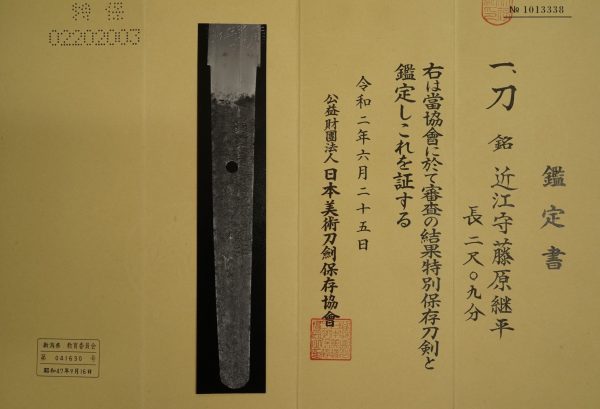 № 1013338
鑑定書
一、刀 銘 近江守藤原継平
長 二尺〇九分
右は當協會に於て審査の結果特別保存刀剣と
鑑定しこれを証する
令和二年六月二十五日
公益財團法人 日本美術刀剣保存協會
特保
02202003
新潟県 教育委員会
第 041630 号
昭和47年9月16日